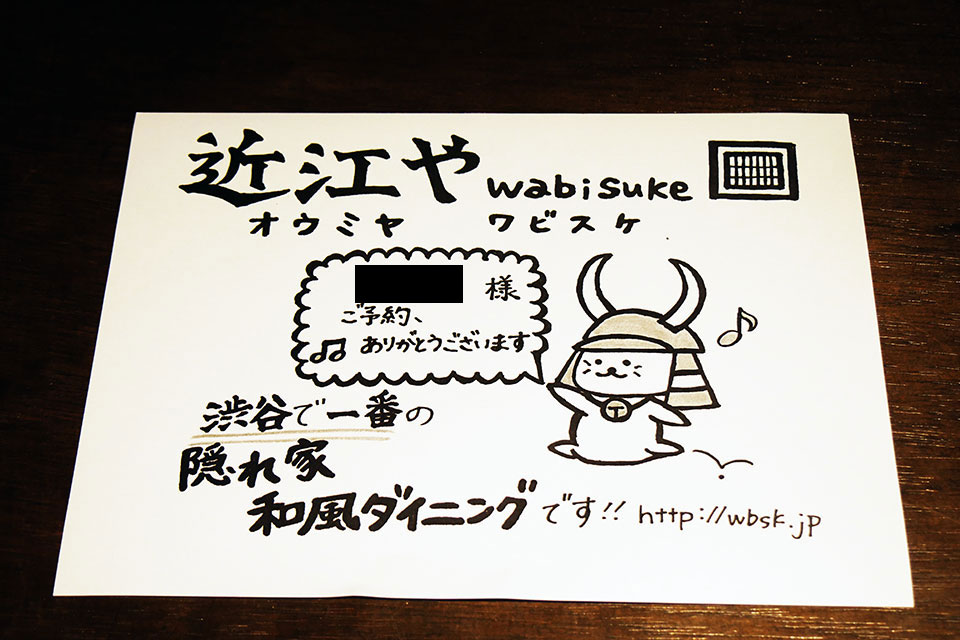 近江や wabisuke
オウミヤ ワビスケ
様
ご予約、
ありがとうございます
渋谷で一番の
隠れ家
和風ダイニングです!! http://wbsk.jp
T